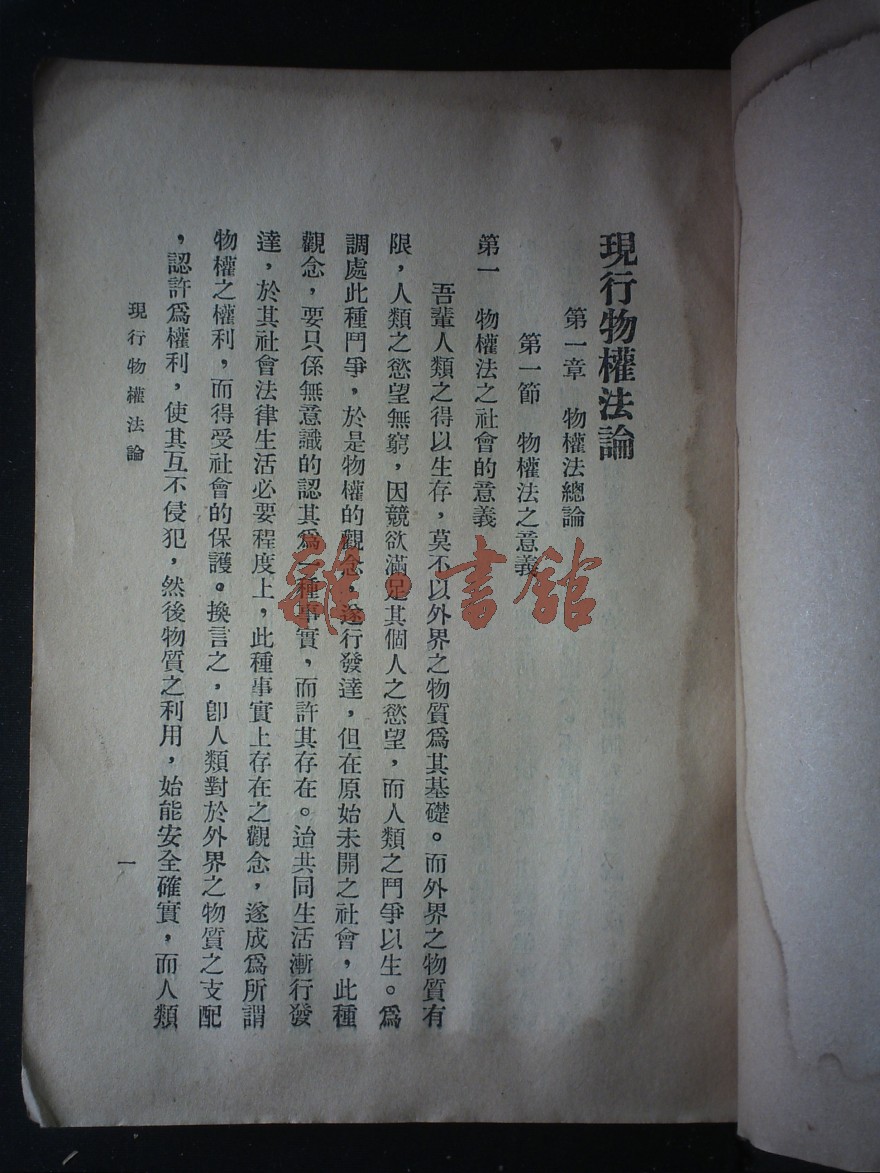 現行物權法論
第一章 物權法總論
第一節 物權法之意義
第一 物權法之社會的意義
吾輩人類之得以生存，莫不以外界之物質爲其基礎。而外界之物質有
限，人類之慾望無窮，因競欲滿足其個人之慾望，而人類之鬥爭以生。爲
調處此種鬥爭，於是物權的觀念，遂行發達，但在原始未開之社會，此種
觀念，要只係無意識的認其爲一種事實，而許其存在。治共同生活漸行發
達，於其社會法律生活必要程度上，此種事實上存在之觀念，遂成爲所謂
物權之權利，而得受社會的保護。換言之，卽人類對於外界之物質之支配
，認許爲權利，使其互不侵犯，然後物質之利用，始能安全確實，而人類
現行物權法論
一
雜·書館